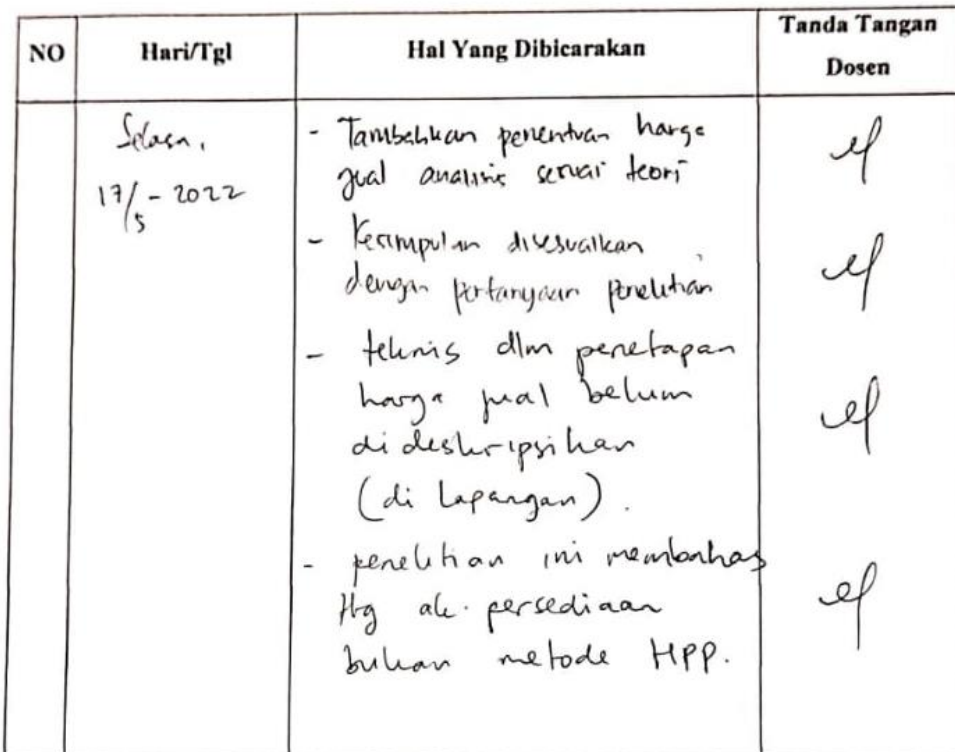 NO
Hari/Tgl
Hal Yang Dibicarakan
Tanda Tangan
Dosen
Selasa,
17/5 - 2022
- Tambahkan penentuan harga
jual analisis sesuai teori
- Kesimpulan disesuaikan
dengan pertanyaan penelitian
- teknis dlm penetapan
harga jual belum
di deskripsikan
(di lapangan).
- penelitian ini membahas
ttg ak. persediaan
bukan metode HPP.